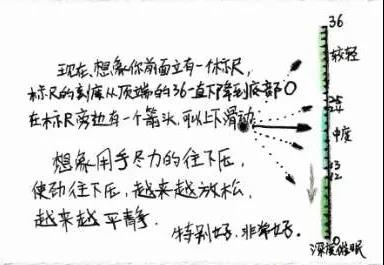 现在,想象你前面立有一休标尺,
标尺的刻度从顶端的36一直下降到底部0
在标尺旁边有一个箭头,可以上下滑动
想象用手尽力的往下压,
使劲往下压,越来越放松,
越来越平静.
特别好.非常好.
36
较轻
25
24
中度
13
12
0
深度催眠